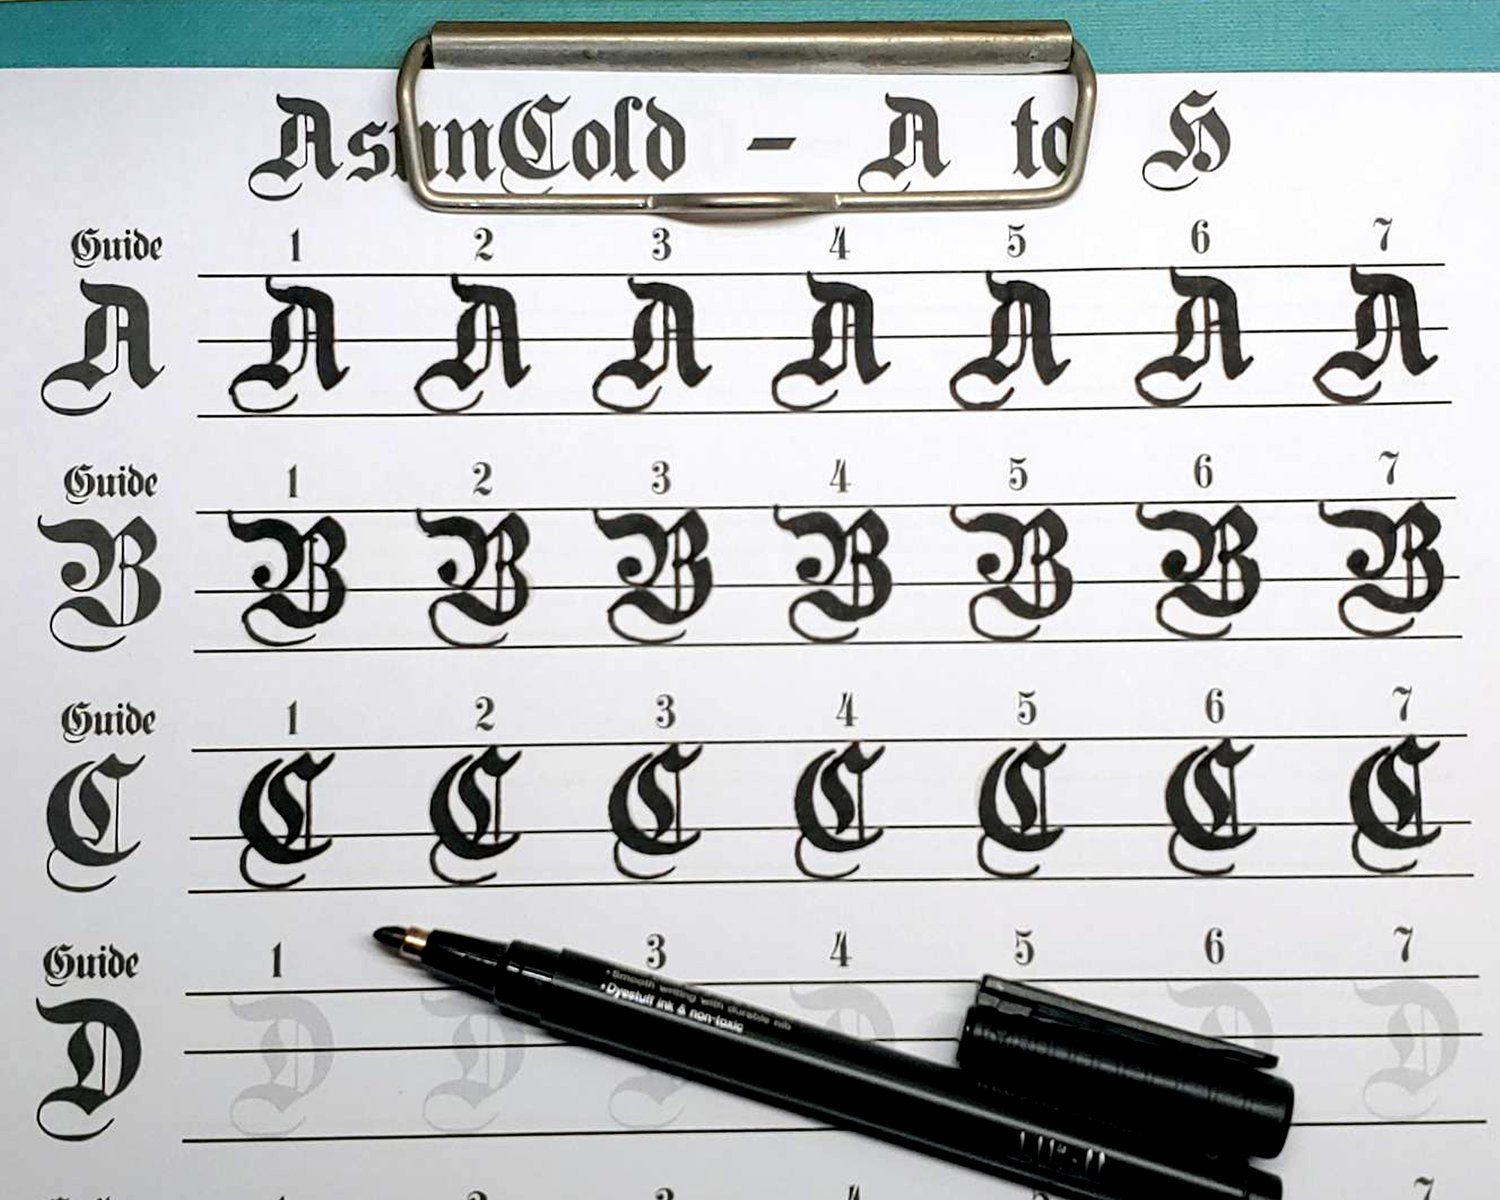 AsunCold - A to H
Guide 1 2 3 4 5 6 7
A A A A A A A A
Guide 1 2 3 4 5 6 7
B B B B B B B B
Guide 1 2 3 4 5 6 7
C C C C C C C C
Guide 1 3 4 5 6 7
D D D D D D D
•Smooth writing with durable nib
•Dyestuff ink & non-toxic